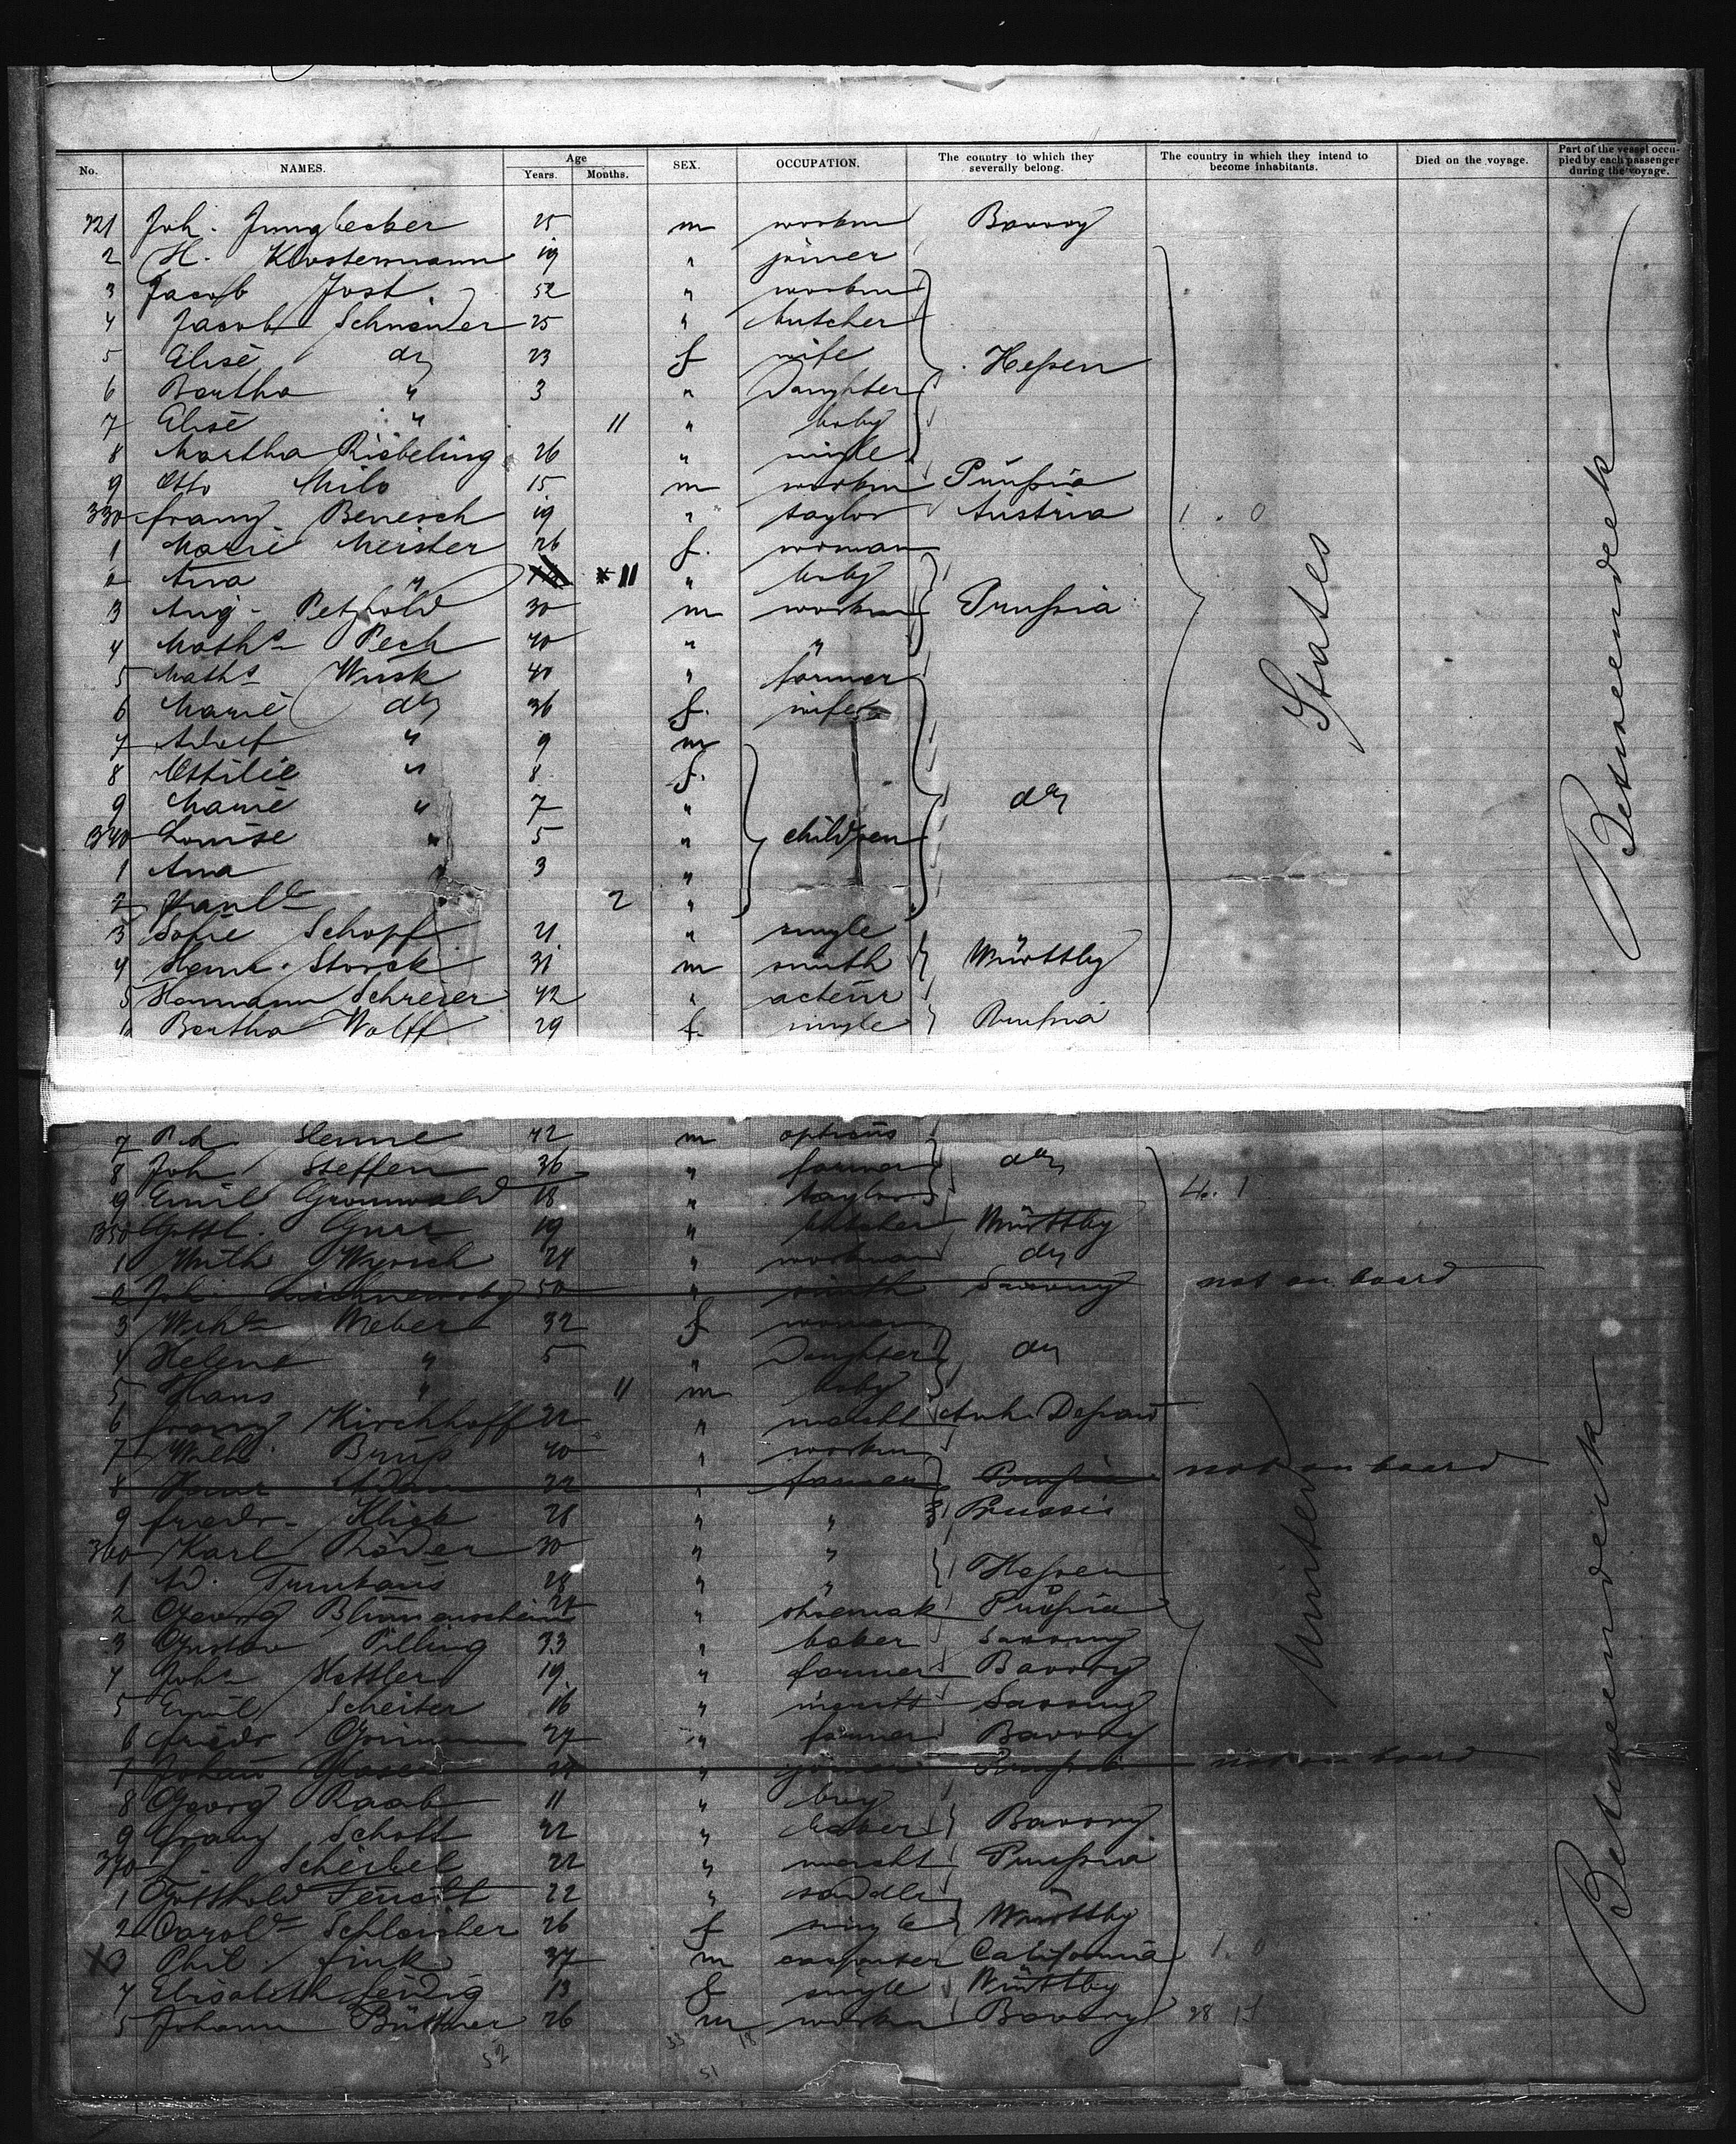 No. NAMES. Age Years. Months. SEX. OCCUPATION. The country to which they severally belong. The country in which they intend to become inhabitants. Died on the voyage. Part of the vessel occupied by each passenger during the voyage.
321 Joh. Jungbecker 25 m workm Bavary
2 H. Klostermann 19 " joiner
3 Jacob Jost 52 " workm
4 Jacob Schneider 25 " butcher
5 Elise do 23 f wife Hessen
6 Bertha " 3 " Daughter
7 Elise " 11 " baby
8 Martha Risbeling 26 " single
9 Otto Milo 15 m workm Prussia
330 Franz Benesch 19 " taylor Austria 1.0
1 Marie Meister 26 f. woman
2 Ana " 11 " baby
3 Aug. Petzhold 30 m workm Prussia
4 Maths Pech 40 " "
5 Maths Wusk 40 " farmer
6 Marie do 36 f. wife
7 Adolf " 9 m
8 Ottilie " 8 f.
9 Marie " 7 " do
340 Louise " 5 " children
1 Ana " 3 "
2 Paule 2 "
3 Sofie Schopf 21 " single
4 Heinr. Storck 31 m smith Württbg
5 Hermann Schreier 42 " acteur
6 Bertha Wolff 29 f. single Prussia
States
Betweendeck
7 Henne 42 m opticus
8 Joh Steffen 36 " farmer do
9 Emil Grunwald 18 " taylor 4.1
350 Gottl. Gurr 19 " butcher Württbg
1 Wyrich 24 " workman do
2 Joh. 50 " smith Saxony not on board
3 Wihe Weber 32 f woman
4 Helene " 5 " Daughter do
5 Hans " 11 m baby
6 Franz Kirchhoff 22 " mercht Anh. Dessau
7 Wilh. Brup 40 " workm
8 Adam 22 " farmer Prussia not on board
9 Friedr. Klick 28 " " Prussia
360 Karl Röder 30 " "
1 Ad. 28 " " Hessen
2 Georg Blumenschein 24 " shoemak Prussia
3 Gustav Pilling 33 " baker Saxony
4 Johs Hettler 19 " farmer Bavary
5 Emil Scheiter 16 " mercht Saxony
6 Friedr Grimm 27 " farmer Bavary
7 Johan Glaser 24 " joiner Prussia not on board
8 Georg Raab 11 " boy
9 Franz Schott 22 " baker Bavary
370 Scheibel 22 " mercht Prussia
1 Gotthold Feucht 22 " sadler
2 Carole 26 f single Württbg
X3 Phil. Fink 37 m carpenter California 1.0
4 Elisabeth Leidig 13 f single Württbg
5 Johann Büttner 26 m workm Bavary
United
Betweendeck
52 33 18
51